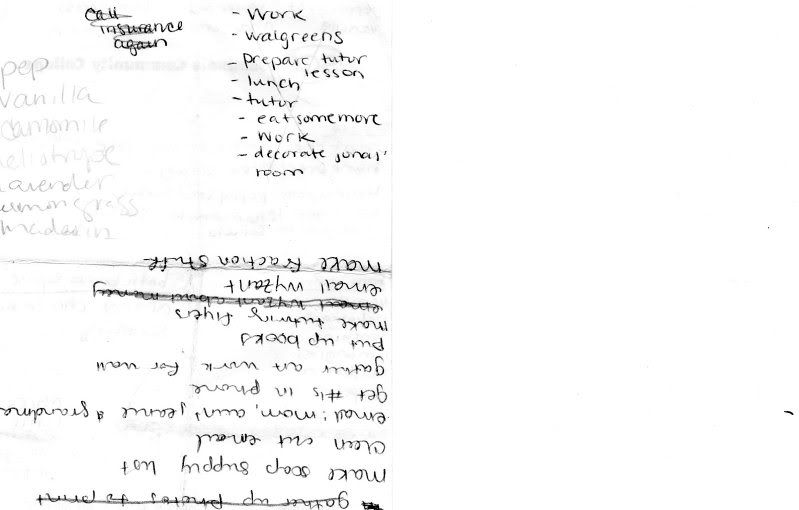 call
insurance
again
- Work
- Walgreens
- prepare tutor
lesson
- lunch
- tutor
- eat some more
- Work
- decorate Jonas'
room
pep
vanilla
camomile
lavender
gather up photos to print
make soap supply list
clean out email
email: mom, aunt jeanie & grandma
get #s in phone
gather art work for wall
put up books
make tutoring flyers
email wyzant about money
email wyzant
make fraction stuff